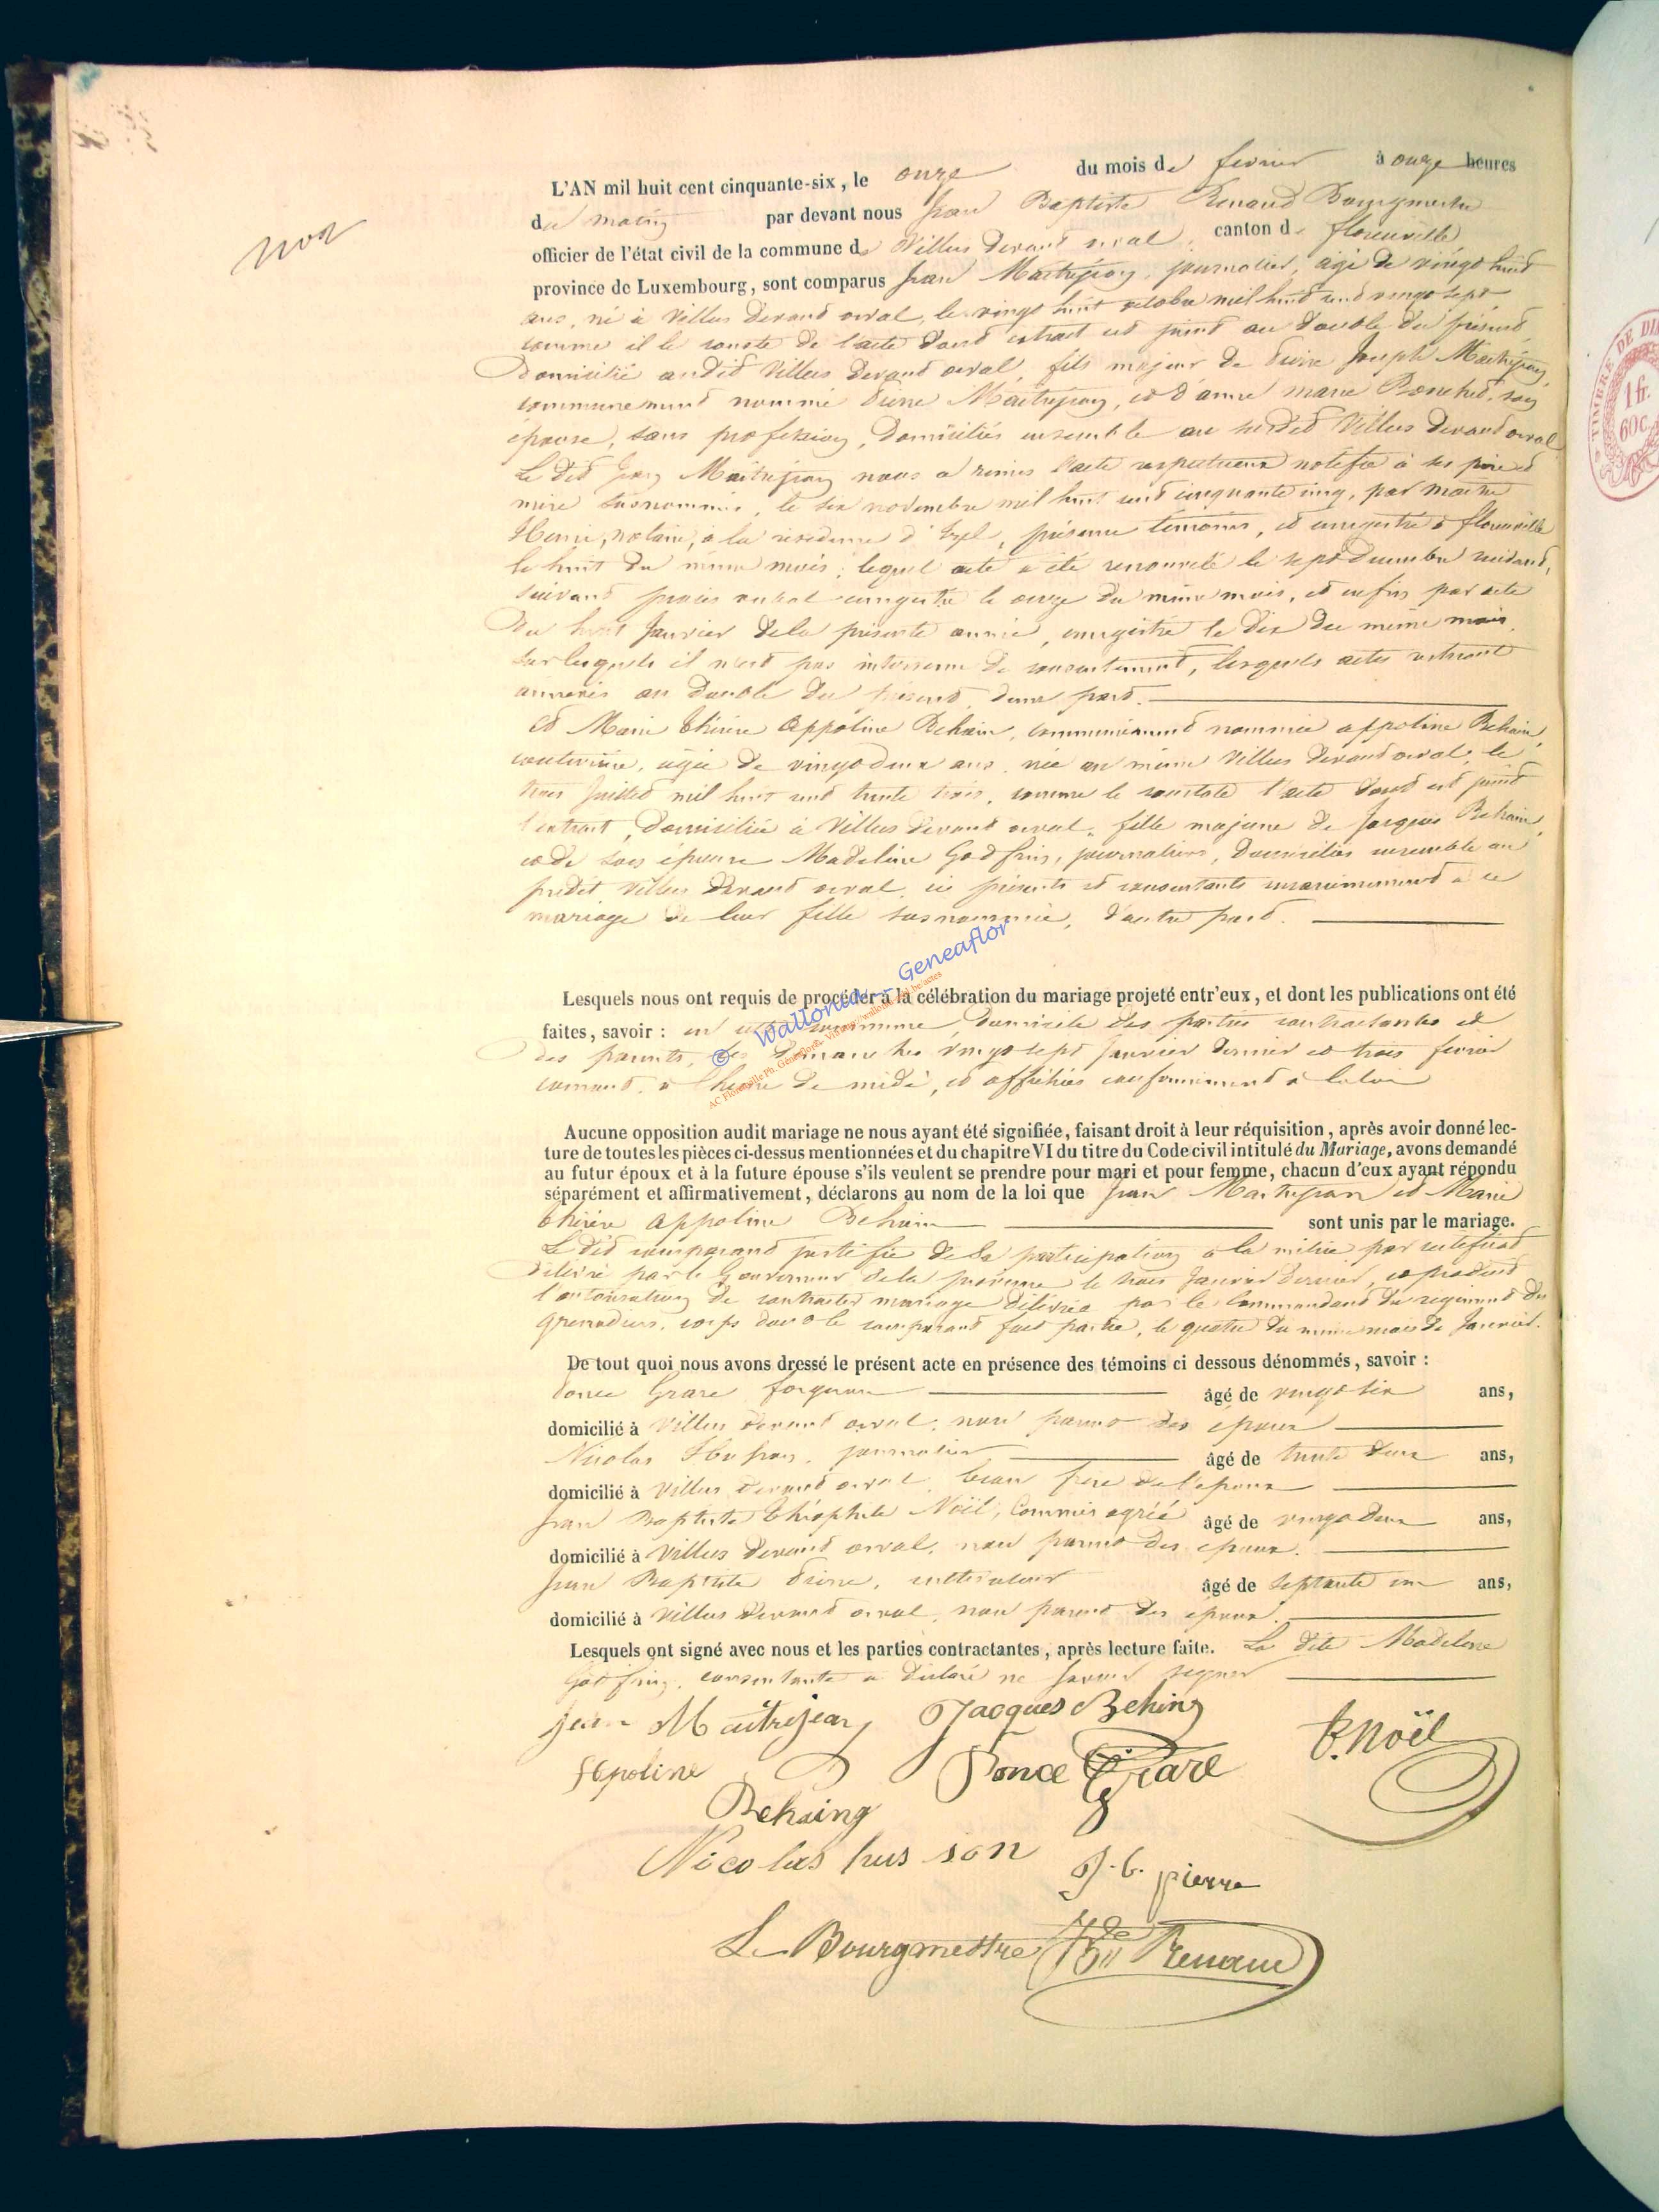 non
L'AN mil huit cent cinquante-six, le onze du mois de fevrier à onze heures
du matin par devant nous Jean Baptiste Renaud Bourgmestre
officier de l'état civil de la commune de Villers devant orval, canton de florenville
province de Luxembourg, sont comparus Jean Maitrejean, journalier, agé de vingt huit
ans, né à Villers devant orval, le vingt huit octobre mil huit cent vingt sept
comme il le conste de l'acte dont extrait est joint au double du présent,
domicilié audit Villers devant orval, fils majeur de Pierre Joseph Maitrejean,
communement nommé Pierre Maitrejean, et d'anne marie Bouchet, son
épouse, sans profession, domiciliés ensemble au susdit Villers devant orval
Le dit Jean Maitrejean nous a remis l'acte respectueux notifié à ses père et
mère susnommés, le six novembre mil huit cent cinquante cinq, par maitre
Henri, notaire, à la residence d'Izel, présence témoins, et enregistré à florenville
le huit du même mois; lequel acte a été renouvelé le sept decembre suivant,
suivant procès verbal enregistré le onze du même mois, et enfin par acte
du huit Janvier dela présente année, enregistré le dix du même mois,
sur lesquels il n'est pas intervenu de consentement, lesquels actes resteront
annexés au double du présent, d'une part.
et Marie thérèse Appoline Behain, communément nommée appoline Behain,
couturière, agée de vingt deux ans, née au même Villers devant orval, le
trois Juillet mil huit cent trente trois, comme le constate l'acte dont est joint
l'extrait, domiciliée à Villers devant orval, fille majeure de Jacques Behain,
et de son épouse Madeline Godfrin, journaliers, domiciliés ensemble au
predit Villers devant orval, ici présents et consentants unanimement à ce
mariage de leur fille susnommée, d'autre part.
Lesquels nous ont requis de procéder à la célébration du mariage projeté entr'eux, et dont les publications ont été
faites, savoir : en cette commune, domicile des parties contractantes et
des parents, les dimanches vingt sept Janvier dernier et trois fevrier
courant, à l'heure de midi, et affichées conformément à la loi
© Wallonia - Geneaflor
AC Florenville Ph. Geneaflor
Aucune opposition audit mariage ne nous ayant été signifiée, faisant droit à leur réquisition, après avoir donné lec-
ture de toutes les pièces ci-dessus mentionnées et du chapitre VI du titre du Code civil intitulé du Mariage, avons demandé
au futur époux et à la future épouse s'ils veulent se prendre pour mari et pour femme, chacun d'eux ayant répondu
séparément et affirmativement, déclarons au nom de la loi que Jean Maitrejean et Marie
thérèse appoline Behain sont unis par le mariage.
Le dit comparant justifie de sa participation à la milice par certificat
délivré par le Gouverneur dela province le trois Janvier dernier, et produit
l'autorisation de contracter mariage délivrée par le Commandant du regiment des
grenadiers, corps dont le comparant fait partie, le quatre du même mois de Janvier.
De tout quoi nous avons dressé le présent acte en présence des témoins ci dessous dénommés, savoir :
Ponce Grare, forgeron âgé de vingt six ans,
domicilié à Villers devant orval, non parent des époux
Nicolas Husson, journalier âgé de trente deux ans,
domicilié à Villers devant orval, beau frère de l'epoux
Jean Baptiste théophile Noël, Commis agréé âgé de vingt deux ans,
domicilié à Villers devant orval, non parent des epoux.
Jean Baptiste Pierre, cultivateur âgé de septante un ans,
domicilié à Villers devant orval, non parent des époux.
Lesquels ont signé avec nous et les parties contractantes, après lecture faite. La dite Madeline
Godfrin, consentante a déclaré ne savoir signer
Jean Maitrejean Jacques Behing
t. Noël
Apoline Ponce Grare
Behaing
Nicolas husson J. b. pierre
Le Bourgmestre Renaud
TIMBRE DE DI
1 fr.
60 c.